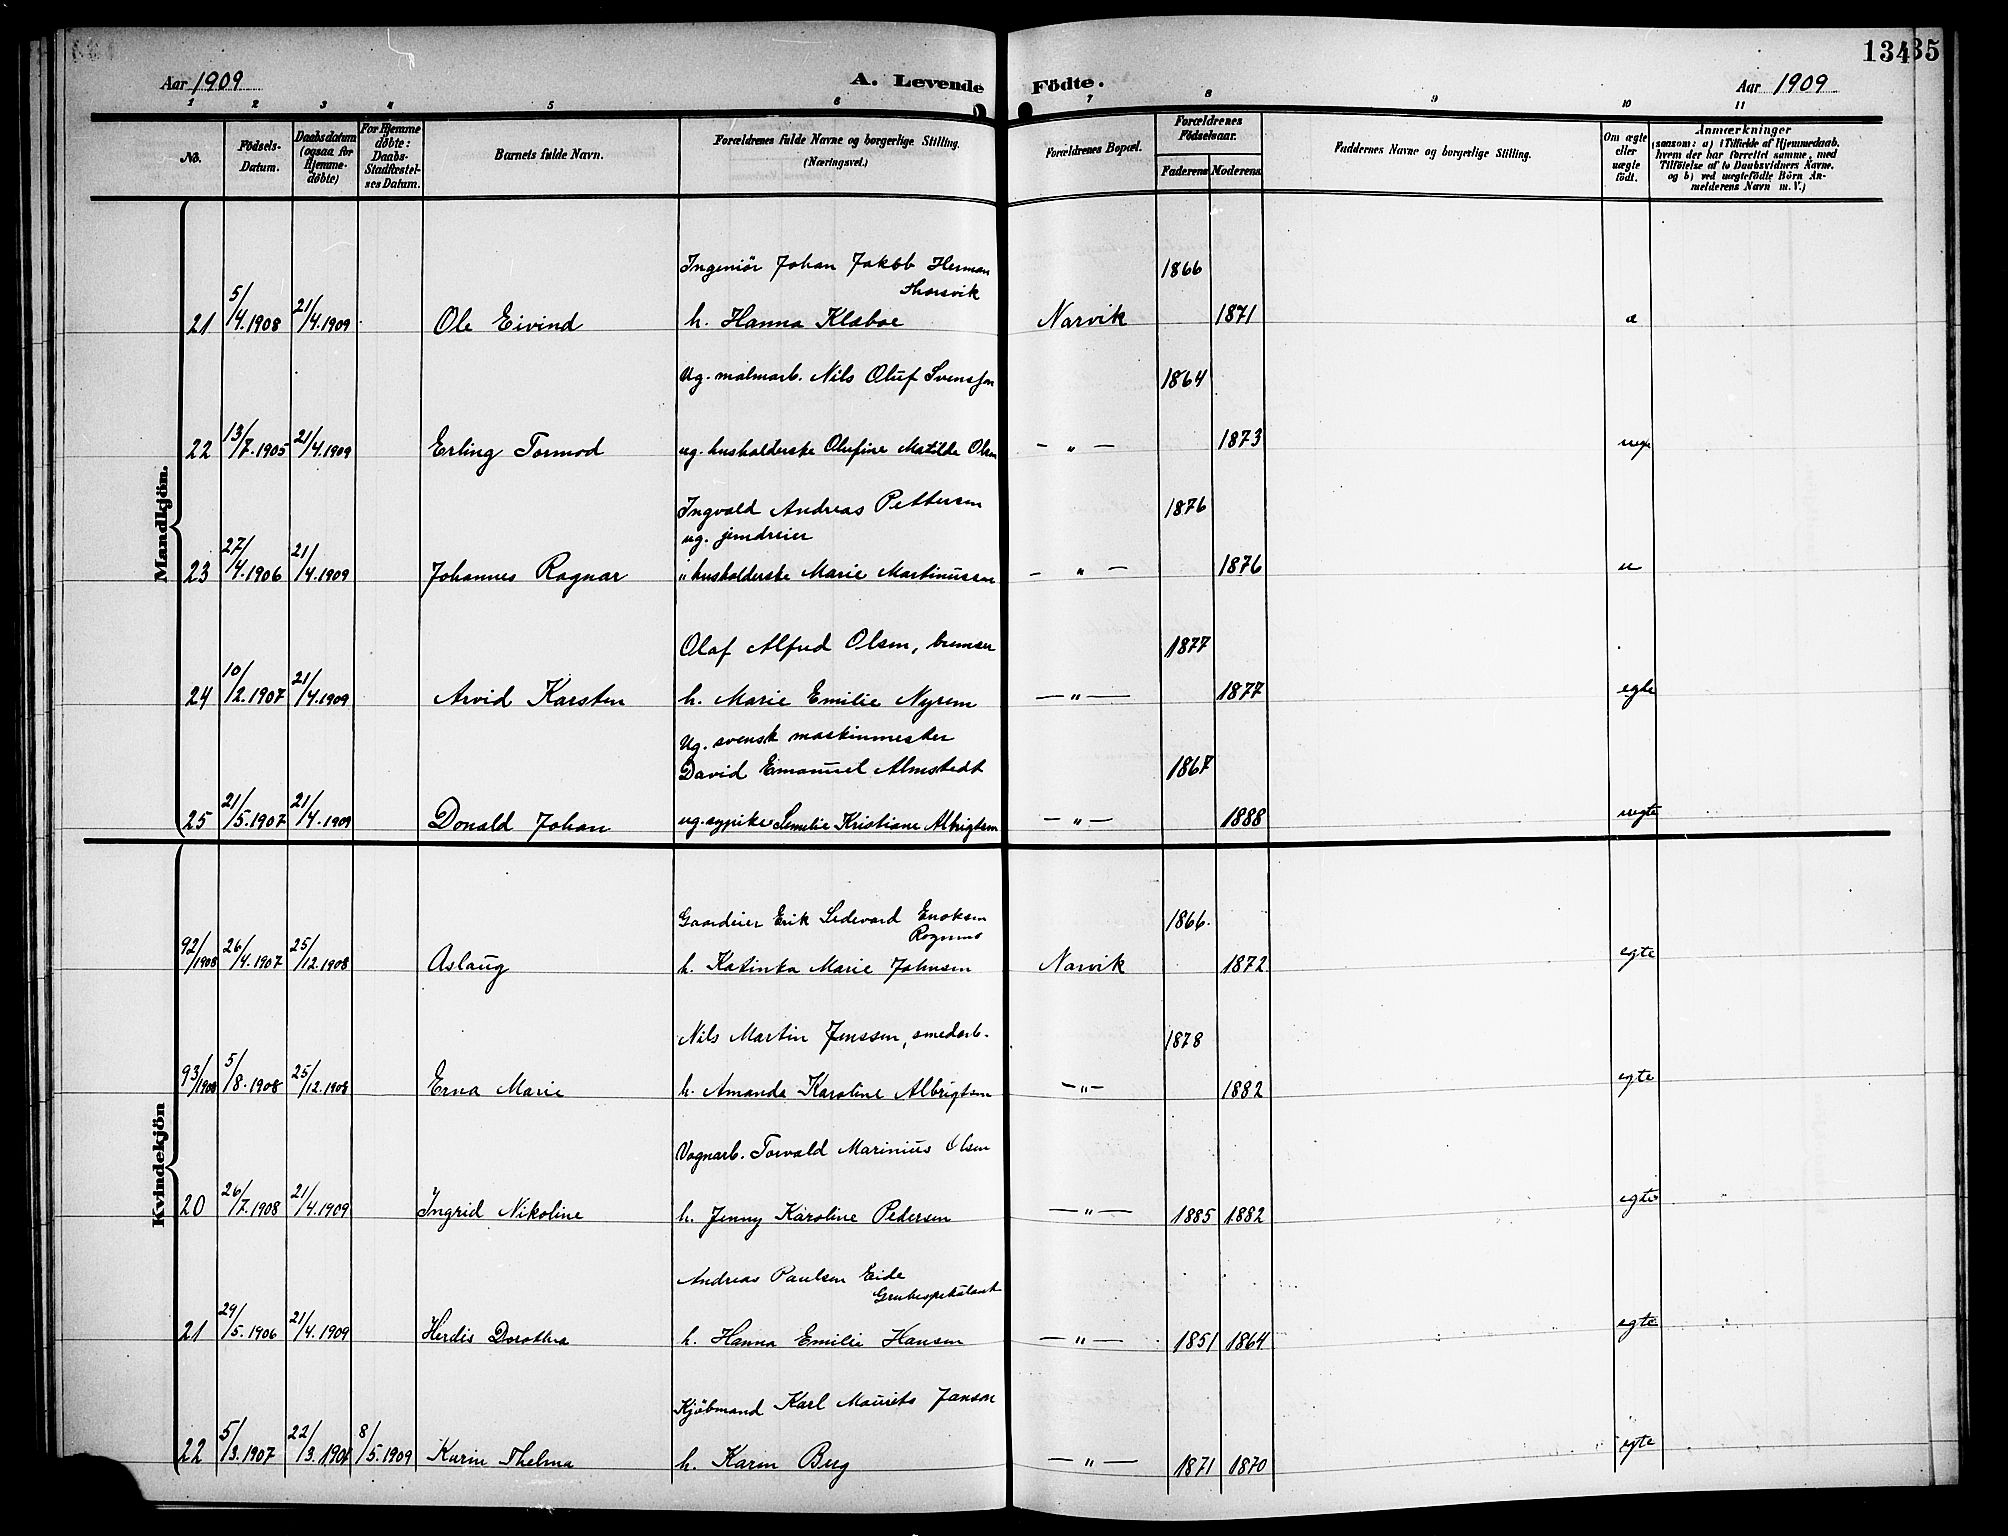 134 35
Aar 1909 A. Levende Födte. Aar 1909
1 2 3 4 5 6 7 8 9 10 11
No. Födsels-Datum. Daabsdatum (ogsaa for Hjemme-döbte) For Hjemme döbte: Daabs-Stadfæstel-ses Datum. Barnets fulde Navn. Forældrenes fulde Navne og borgerlige Stilling. (Næringsvei.) Forældrenes Bopæl. Forældrenes Födselsaar. Faderens Moderens Faddernes Navne og borgerlige Stilling. Om ægte eller uægte födt. Anmærkninger (saasom: a) i Tilfælde af Hjemmedaab, hvem der har forrettet samme, med Tilföielse af to Daabsvidners Navne. og b) ved uægtefödte Börn An-melderens Navn m. V.)
Mandkjön.
Ingeniör Johan Jakob Herman 1866
Thorsvik
21 5/4.1908 21/4.1909 Ole Eivind h. Hanna Klæboe Narvik 1871 æ
Ug. malmarb. Nils Oluf Svensson 1864
22 13/7.1905 21/4.1909 Erling Tormod ug. husholderske Olufine Matilde Olsen — „ — 1873
Ingvald Andreas Pettersen 1876
ug. jerndreier
23 27/4.1906 21/4.1909 Johannes Ragnar „ husholderske Marie Martinussen — „ — 1876 u
Olaf Alfred Olsen, bremser 1877
24 10/2.1907 21/4.1909 Arvid Karsten h. Marie Emilie Nyrem — „ — 1877 egte
Ug. svensk maskinmester
David Emanuel Almstedt 1867
25 21/5.1907 21/4.1909 Donald Johan ug. sypike Kristiane Albrigtsen — „ — 1888 uegte
Kvindekjön
Gaardeier Erik Sedevard Enoksen 1866.
Rognmo
92/1908 26/4.1907 25/12.1908 Aslaug h. Katinka Marie Johnsen Narvik 1872 egte
Nils Martin Jenssen, smedarb. 1878
93/1908 5/8.1908 25/12.1908 Erna Marie h. Amanda Karoline Albrigtsen — „ — 1882 egte
Vognarb. Torvald Marinius Olsen
20 26/7.1908 21/4.1909 Ingrid Nikoline h. Jenny Karoline Pedersen — „ — 1885 1882 egte
Andreas Paulsen Eide
Grubespekulant
21 29/5.1906 21/4.1909 Herdis Dorothea h. Hanna Emilie Hansen — „ — 1851 1864 egte
Kjöbmand Karl Maurits Janson
22 5/3.1907 22/3.1907 8/5.1909 Karin Thelma h. Karen Berg — „ — 1871 1870 egte